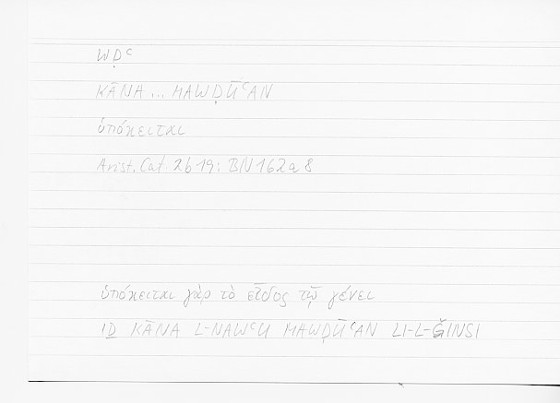 WḌᶜ
KĀNA ... MAWḌŪᶜAN
ὑπόκειται
Arist. Cat 2b19: BN 162a8
ὑπόκειται γὰρ τὸ εἶδος τῷ γένει
IḎ KĀNA L-NAWᶜU MAWḌŪᶜAN LI-L-ǦINSI